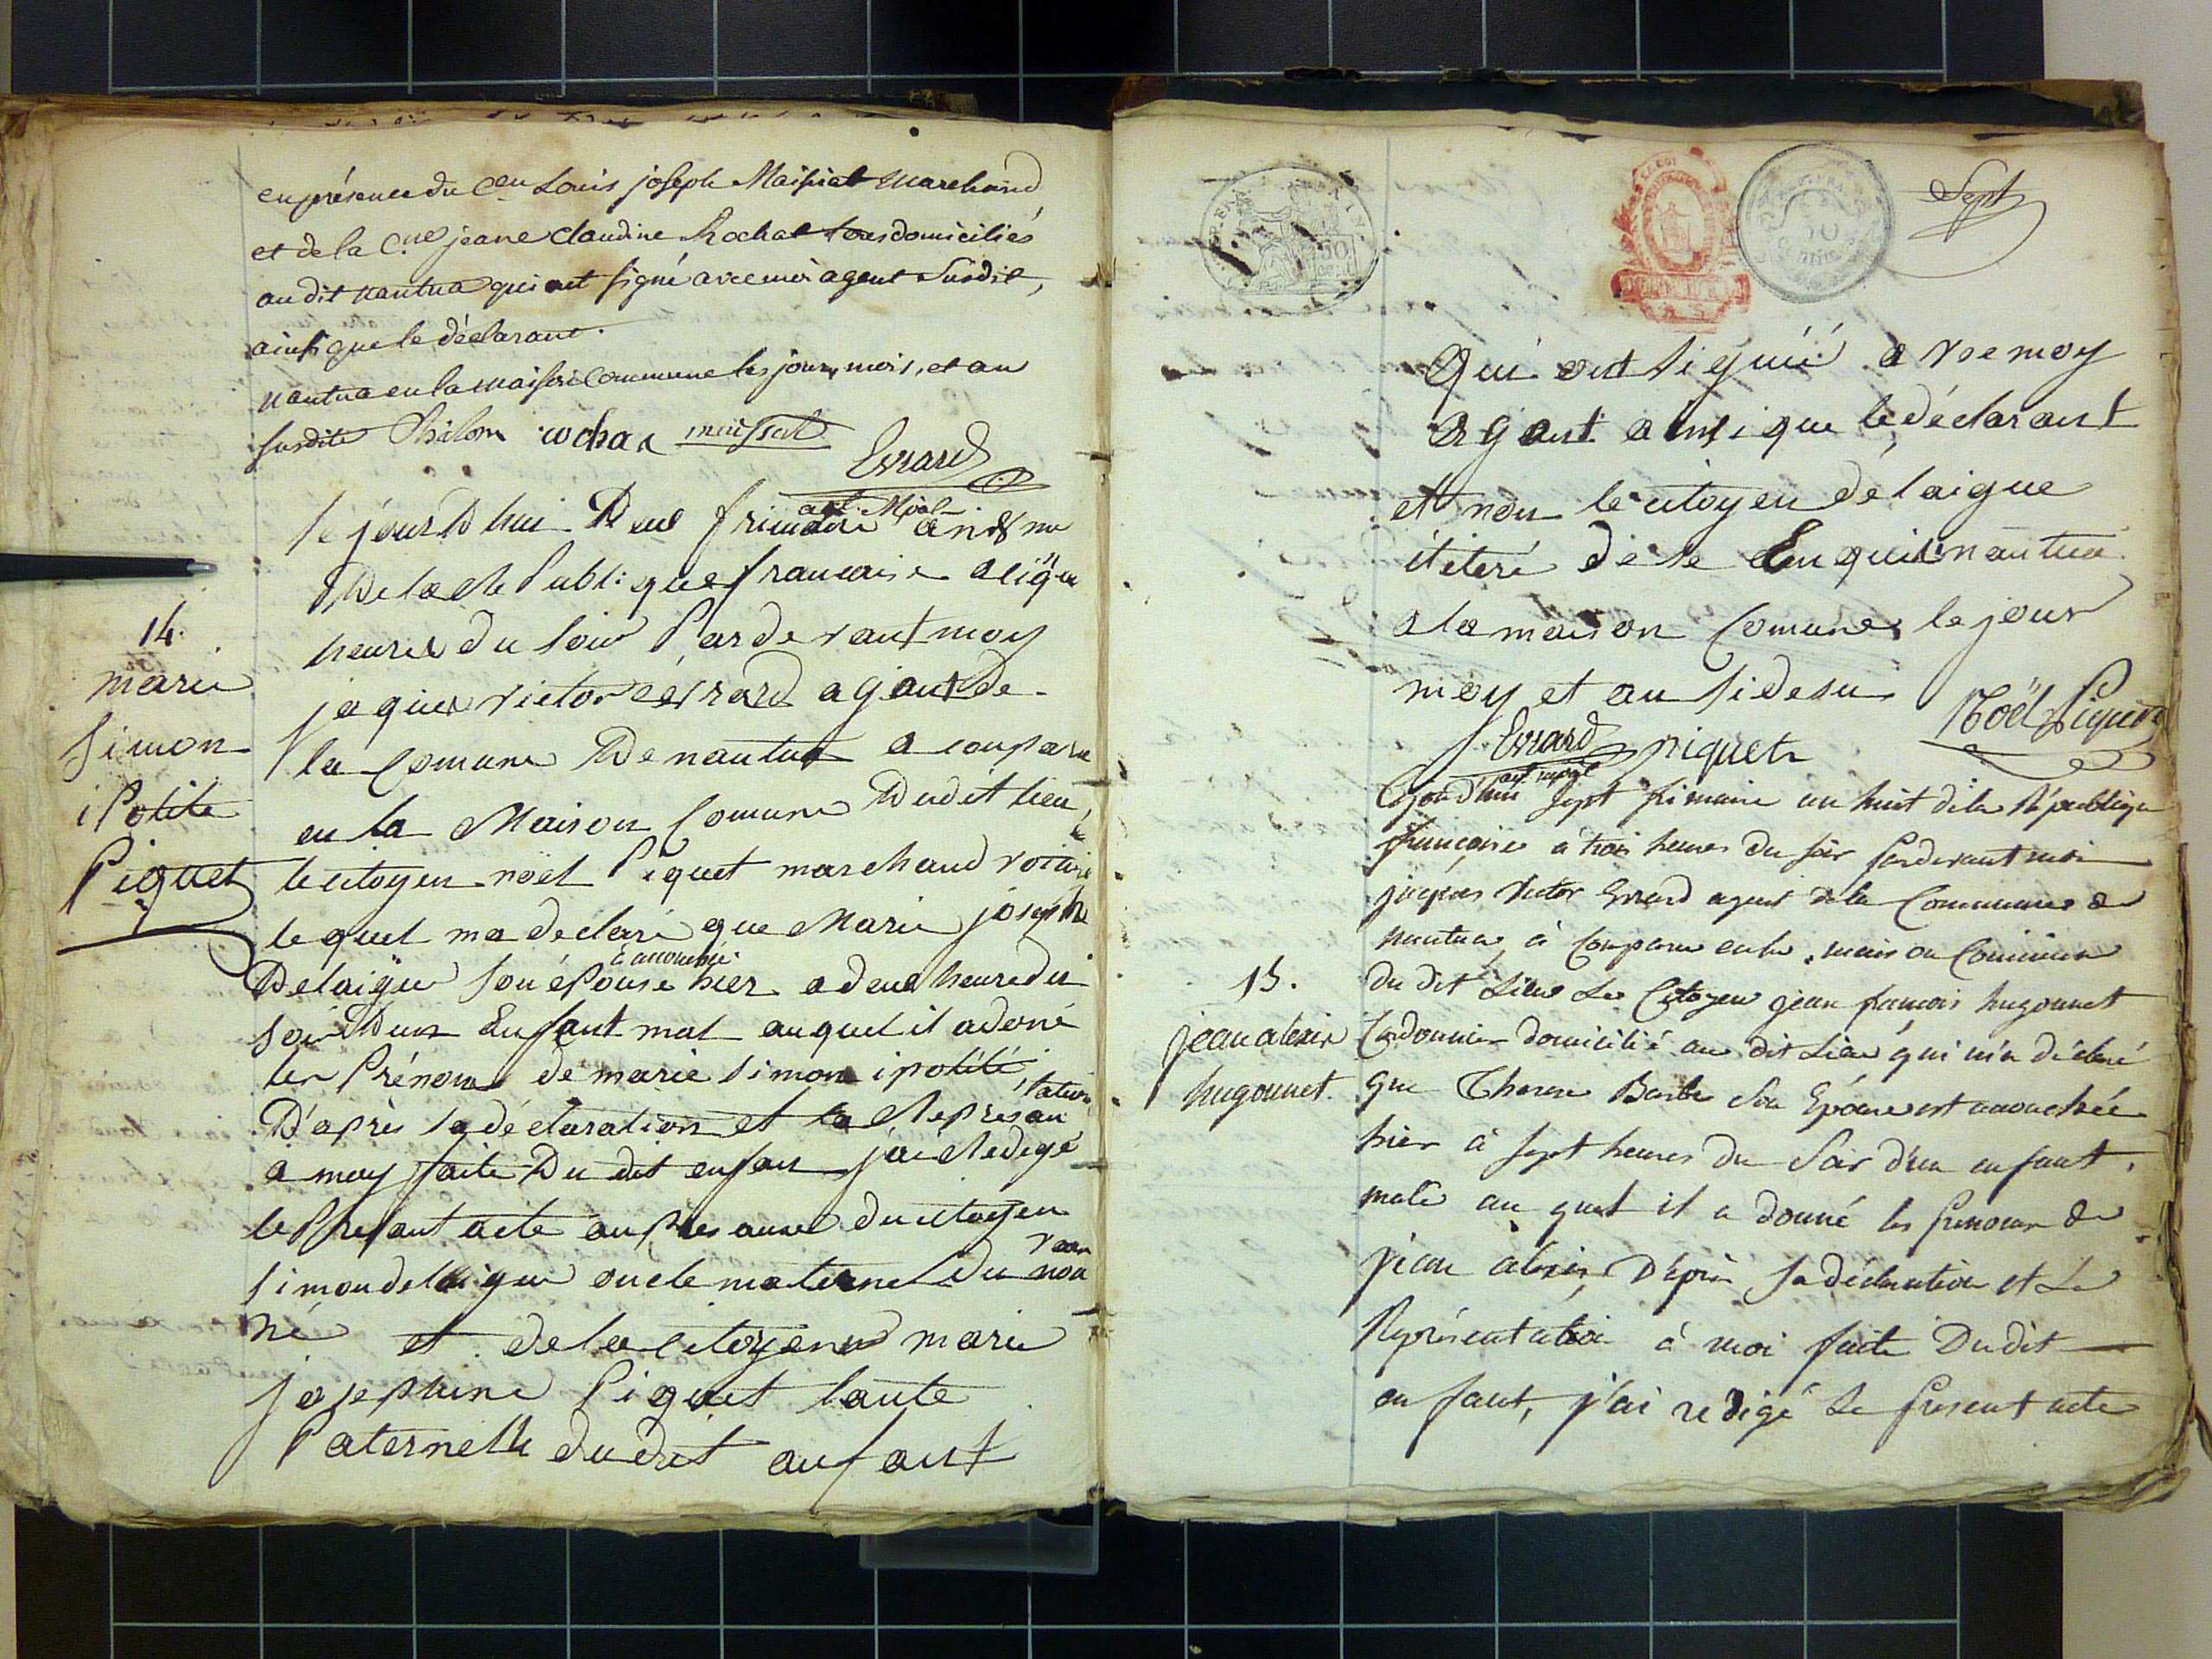 en présence du C.en Louis joseph Maissiat Marchand
et de la C.ne jeane claudine Rochat tous domiciliés
au dit nantua qui ont signé avec moi agent Susdit,
ainsi que le déclarant.
nantua en la maison Commune les jour, mois, et an
susdits Philom rochat maissiat
Evrard
agt. Mpal
Ce jourdhui Deus frimaire an 8 me
De la Republique francaise a
heures du soir Pardevant moy
jaques victor evrard agant de
la Comune De nantua a comparu
en la Maison Comune Dudit lieu
le citoyen noël Piquet marchand
le quel ma declaré que Marie joseph
a accouchée
Delaigue son épouse hier a deus heure du
soir Dun Enfant mal auquel il a doné
les Prénoms de marie simon ipolite,
tation
D'après la déclaration et la Represan
a moy faite Du dit enfan jai Redigé
le Presant acte au Presance du citoyen
simon delaigue oncle maternel du nou
veau
né et de la citoyene marie
josephine Piquet tante
Paternelle du dit anfant
14.
marie
simon
iPolite
Piquet
Sept
Qui ont signié avec moy
agant ainsi que le déclarant
et non le citoyen delaigue
itteré de ce Enquis nantua
a la maison Comune le jour
moy et an si desu
Noël Piquet
Evrard piquet
agt mpal
Cejourd'hui sept frimaire an huit de la République
française à trois heures du soir pardevant moi
jacques Victor Evrard agent de la Commune de
nantua, à Comparu en la maison Commune
du dit Lieu Le Citoyen jean francois hugonnet
Cordonnier domicilié au dit Lieu qui m'a déclaré
que Therese Barbe Son Epouse est accouchée
hier à sept heures du Soir d'un enfant
male au quel il a donné les prenoms de
jean alexis, D'après Sa déclaration et La
Représentation à moi faite Dudit
enfant, j'ai redigé Le present acte
15.
jean alexis
hugonnet.